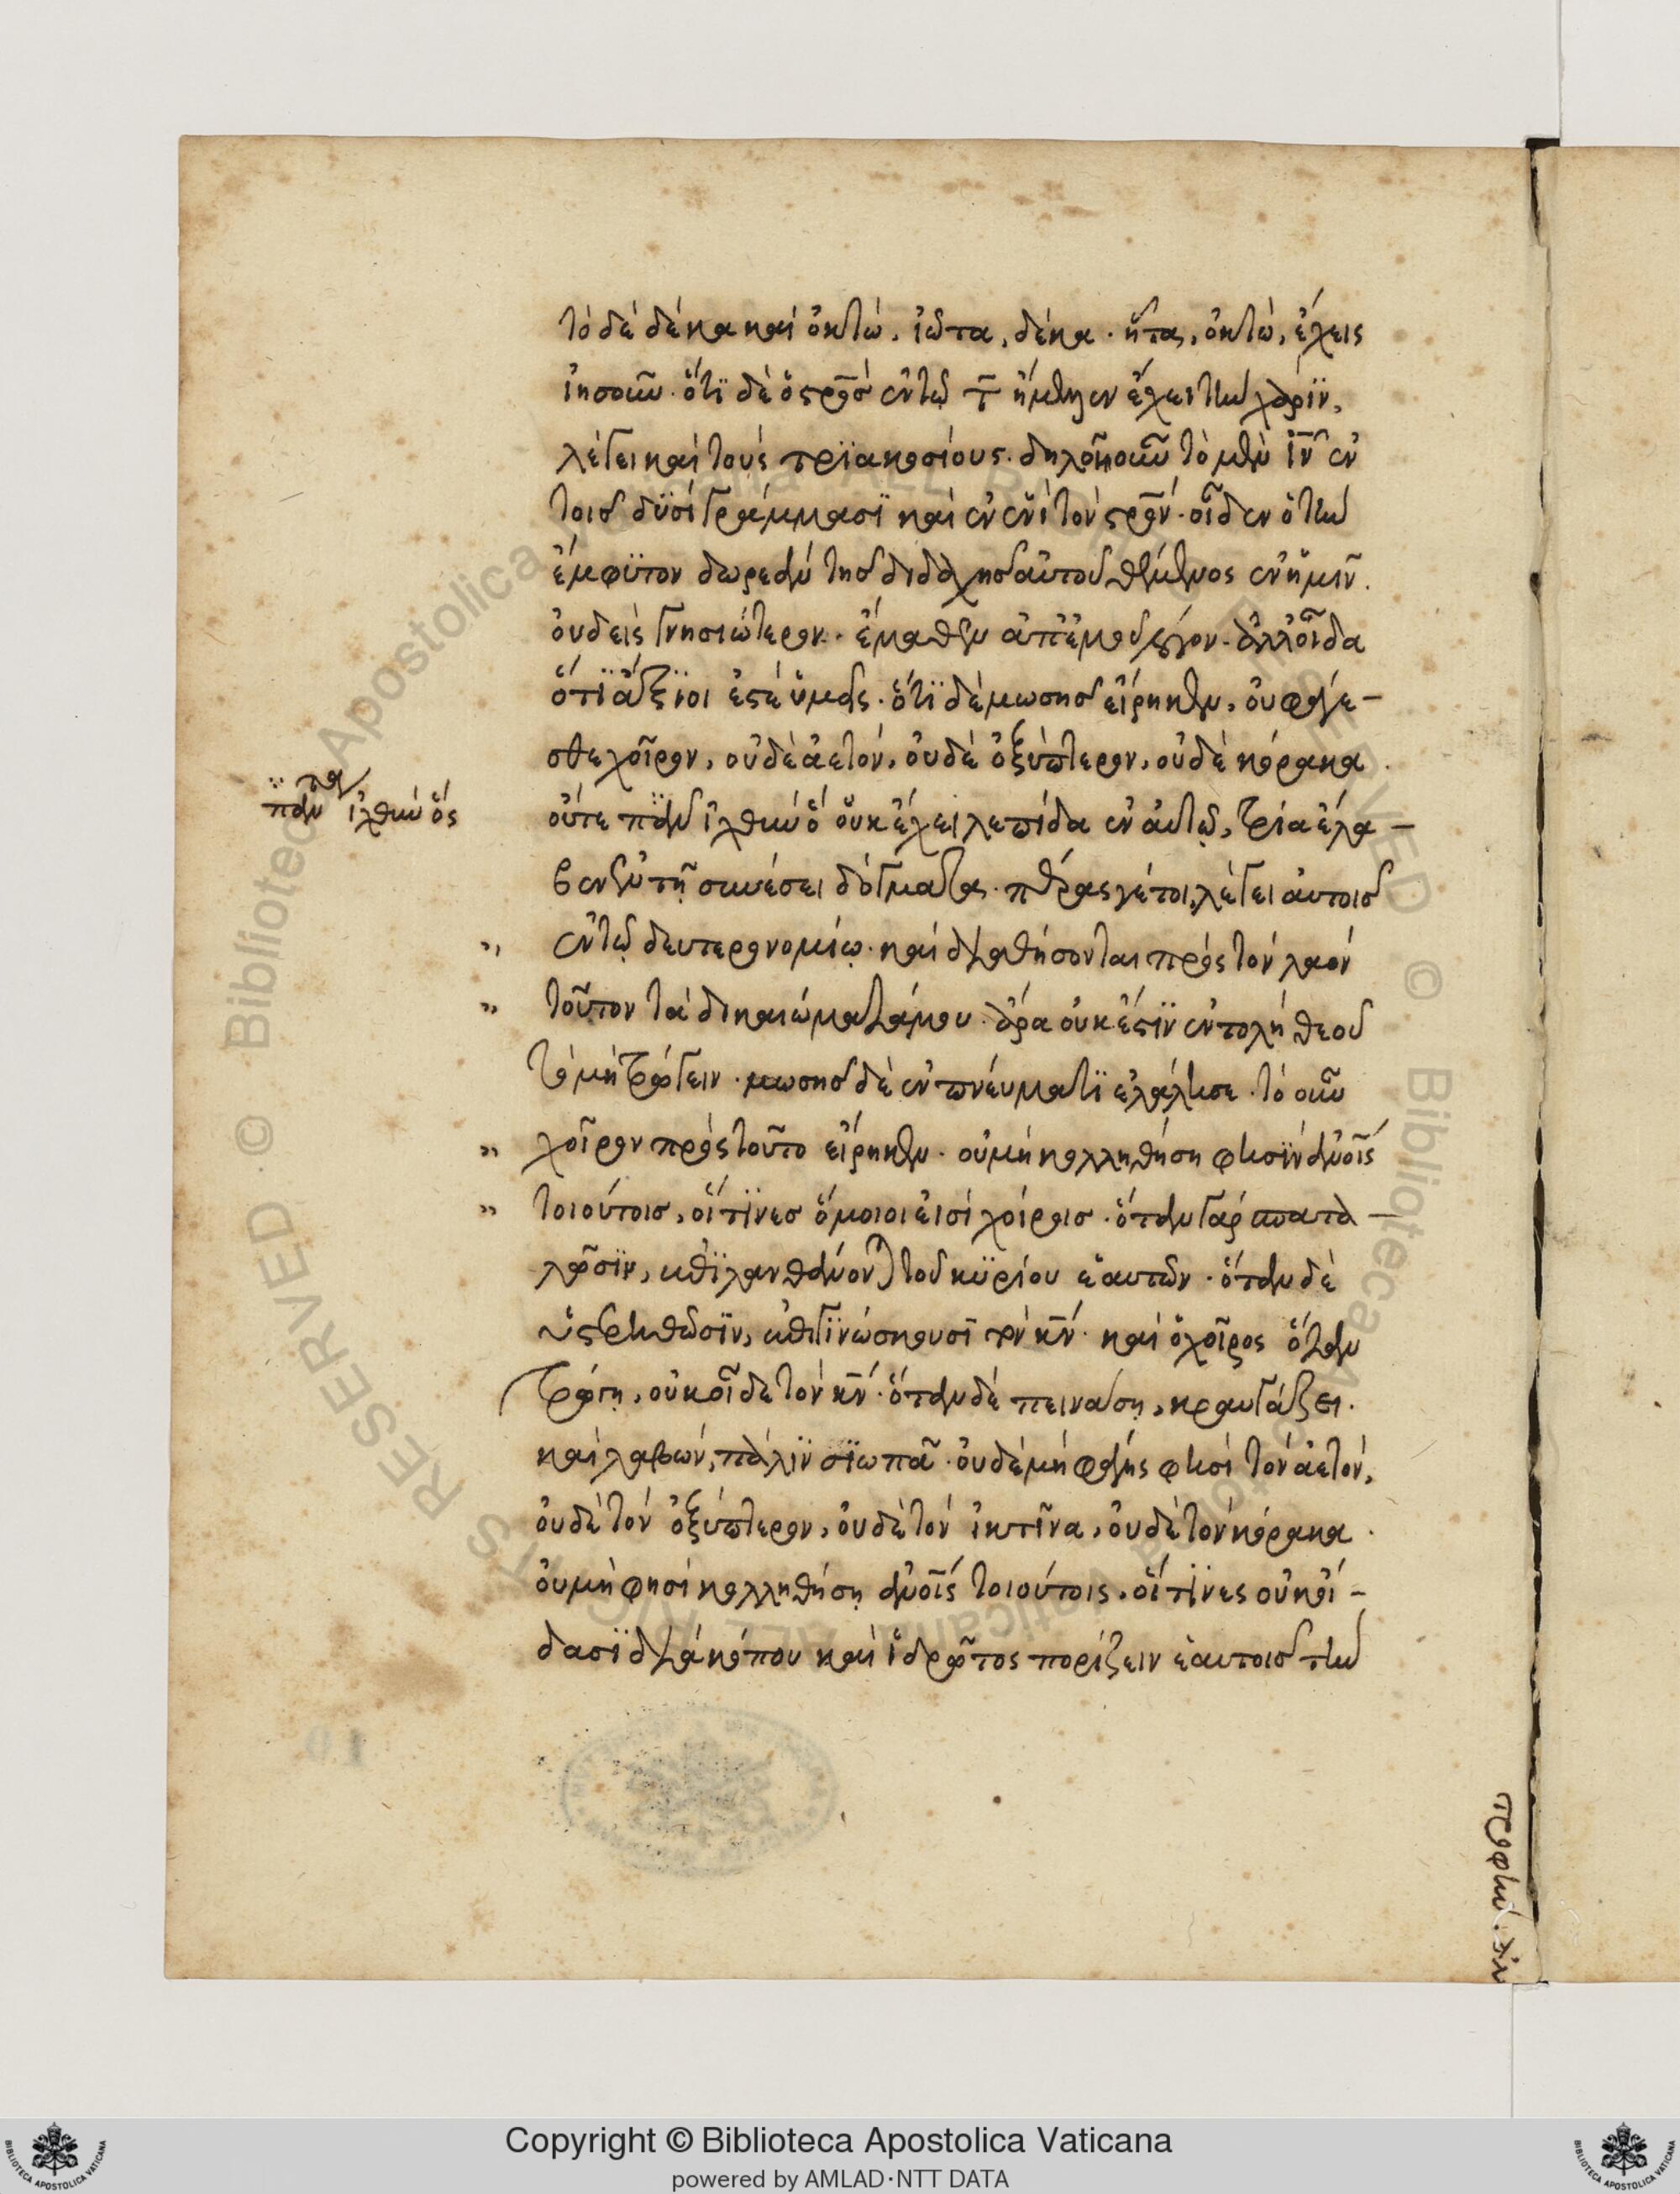 τὸ δὲ δέκα καὶ ὀκτὼ. ἰῶτα, δέκα. ἦτα, ὀκτὼ, ἔχεις
ἰησοῦν. ὅτϊ δὲ ὁ σρ̅σ ἐν τῷ τ̅ ἤμελλεν ἔχειν τὴν χάρϊν,
λέγει καὶ τοὺς τρϊακοσίους. δηλοῖ οὖν τὸ μὲν ἰ̅ν ἐν
τοῖς δϋσὶ γράμμασϊ καὶ ἐν ἑνὶ τὸν σρ̅ν. οἶδεν ὁ τὴν
ἔμφϋτον δωρεὰν τῆς διδαχῆς αὐτοῦ θέμενος ἐν ἡμῖν.
οὐδεὶς γνησιώτερον. ἔμαθεν ἀπ' ἐμοῦ λόγον. ἀλλ' οἶδα
ὅτϊ ἄξϊοι ἐστὲ ὑμεῖς. ὅτϊ δὲ μωσῆς εἴρηκεν, οὐ φάγε-
σθε χοῖρον, οὐδὲ ἀετόν, οὐδὲ ὀξύπτερον, οὐδὲ κόρακα.
οὔτε πᾶν ἰχθὺν ὃ οὐκ ἔχει λεπίδα ἐν αὐτῷ, τρία ἔλα-
βεν ἐν τῇ συνέσει δόγματα. πέρας γέ τοι, λέγει αὐτοῖς
πάντα
πᾶν ἰχθὺν ὃς
ἐν τῷ δευτερονομίῳ. καὶ διαθήσονται πρὸς τὸν λαὸν
τοῦτον τὰ δικαιώματά μου. ἄρα οὐκ ἔστϊν ἐντολὴ θεοῦ
τὸ μὴ τρώγειν. μωσῆς δὲ ἐν πνεύματϊ ἐλάλησε. τὸ οὖν
χοῖρον πρὸς τοῦτο εἴρηκεν. οὐ μὴ κολληθήσῃ φησϊν ἀνοῖς
τοιούτοις, οἵτϊνες ὅμοιοι εἰσὶ χοίροις. ὅταν γὰρ σπατα-
λῶσϊν, ἐπϊλανθάνονται τοῦ κϋρίου ἑαυτῶν. ὅταν δὲ
ὑστερηθῶσϊν, ἐπιγϊνώσκουσϊ τὸν κ̅ν. καὶ ὁ χοῖρος ὅταν
τρώγῃ, οὐκ οἶδε τὸν κ̅ν. ὅταν δὲ πεινάσῃ, κραυγάζει.
καὶ λαβὼν, πάλϊν σϊωπᾷ. οὐδὲ μὴ φάγῃς φησὶ τὸν ἀετόν,
οὐδὲ τὸν ὀξύπτερον, οὐδὲ τὸν ἰκτῖνα, οὐδὲ τὸν κόρακα.
οὐ μὴ φησὶ κολληθήσῃ ἀνοῖς τοιούτοις, οἵτϊνες οὐκ οἴ-
δασϊ διὰ κόπου καὶ ἱδρῶτος πορίζειν ἑαυτοῖς τὴν
Copyright © Biblioteca Apostolica Vaticana
powered by AMLAD·NTT DATA